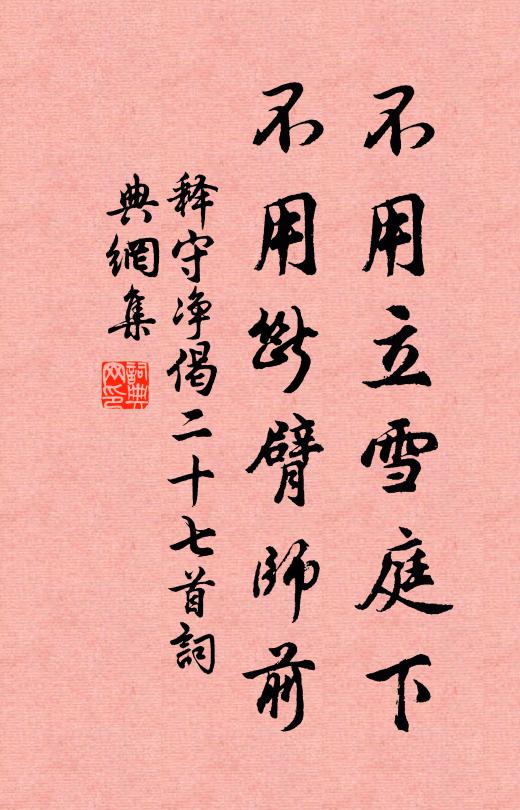 不用立雪庭下
不用斷臂師前
释守净偈二十七首詞
典網集
詞典
网印